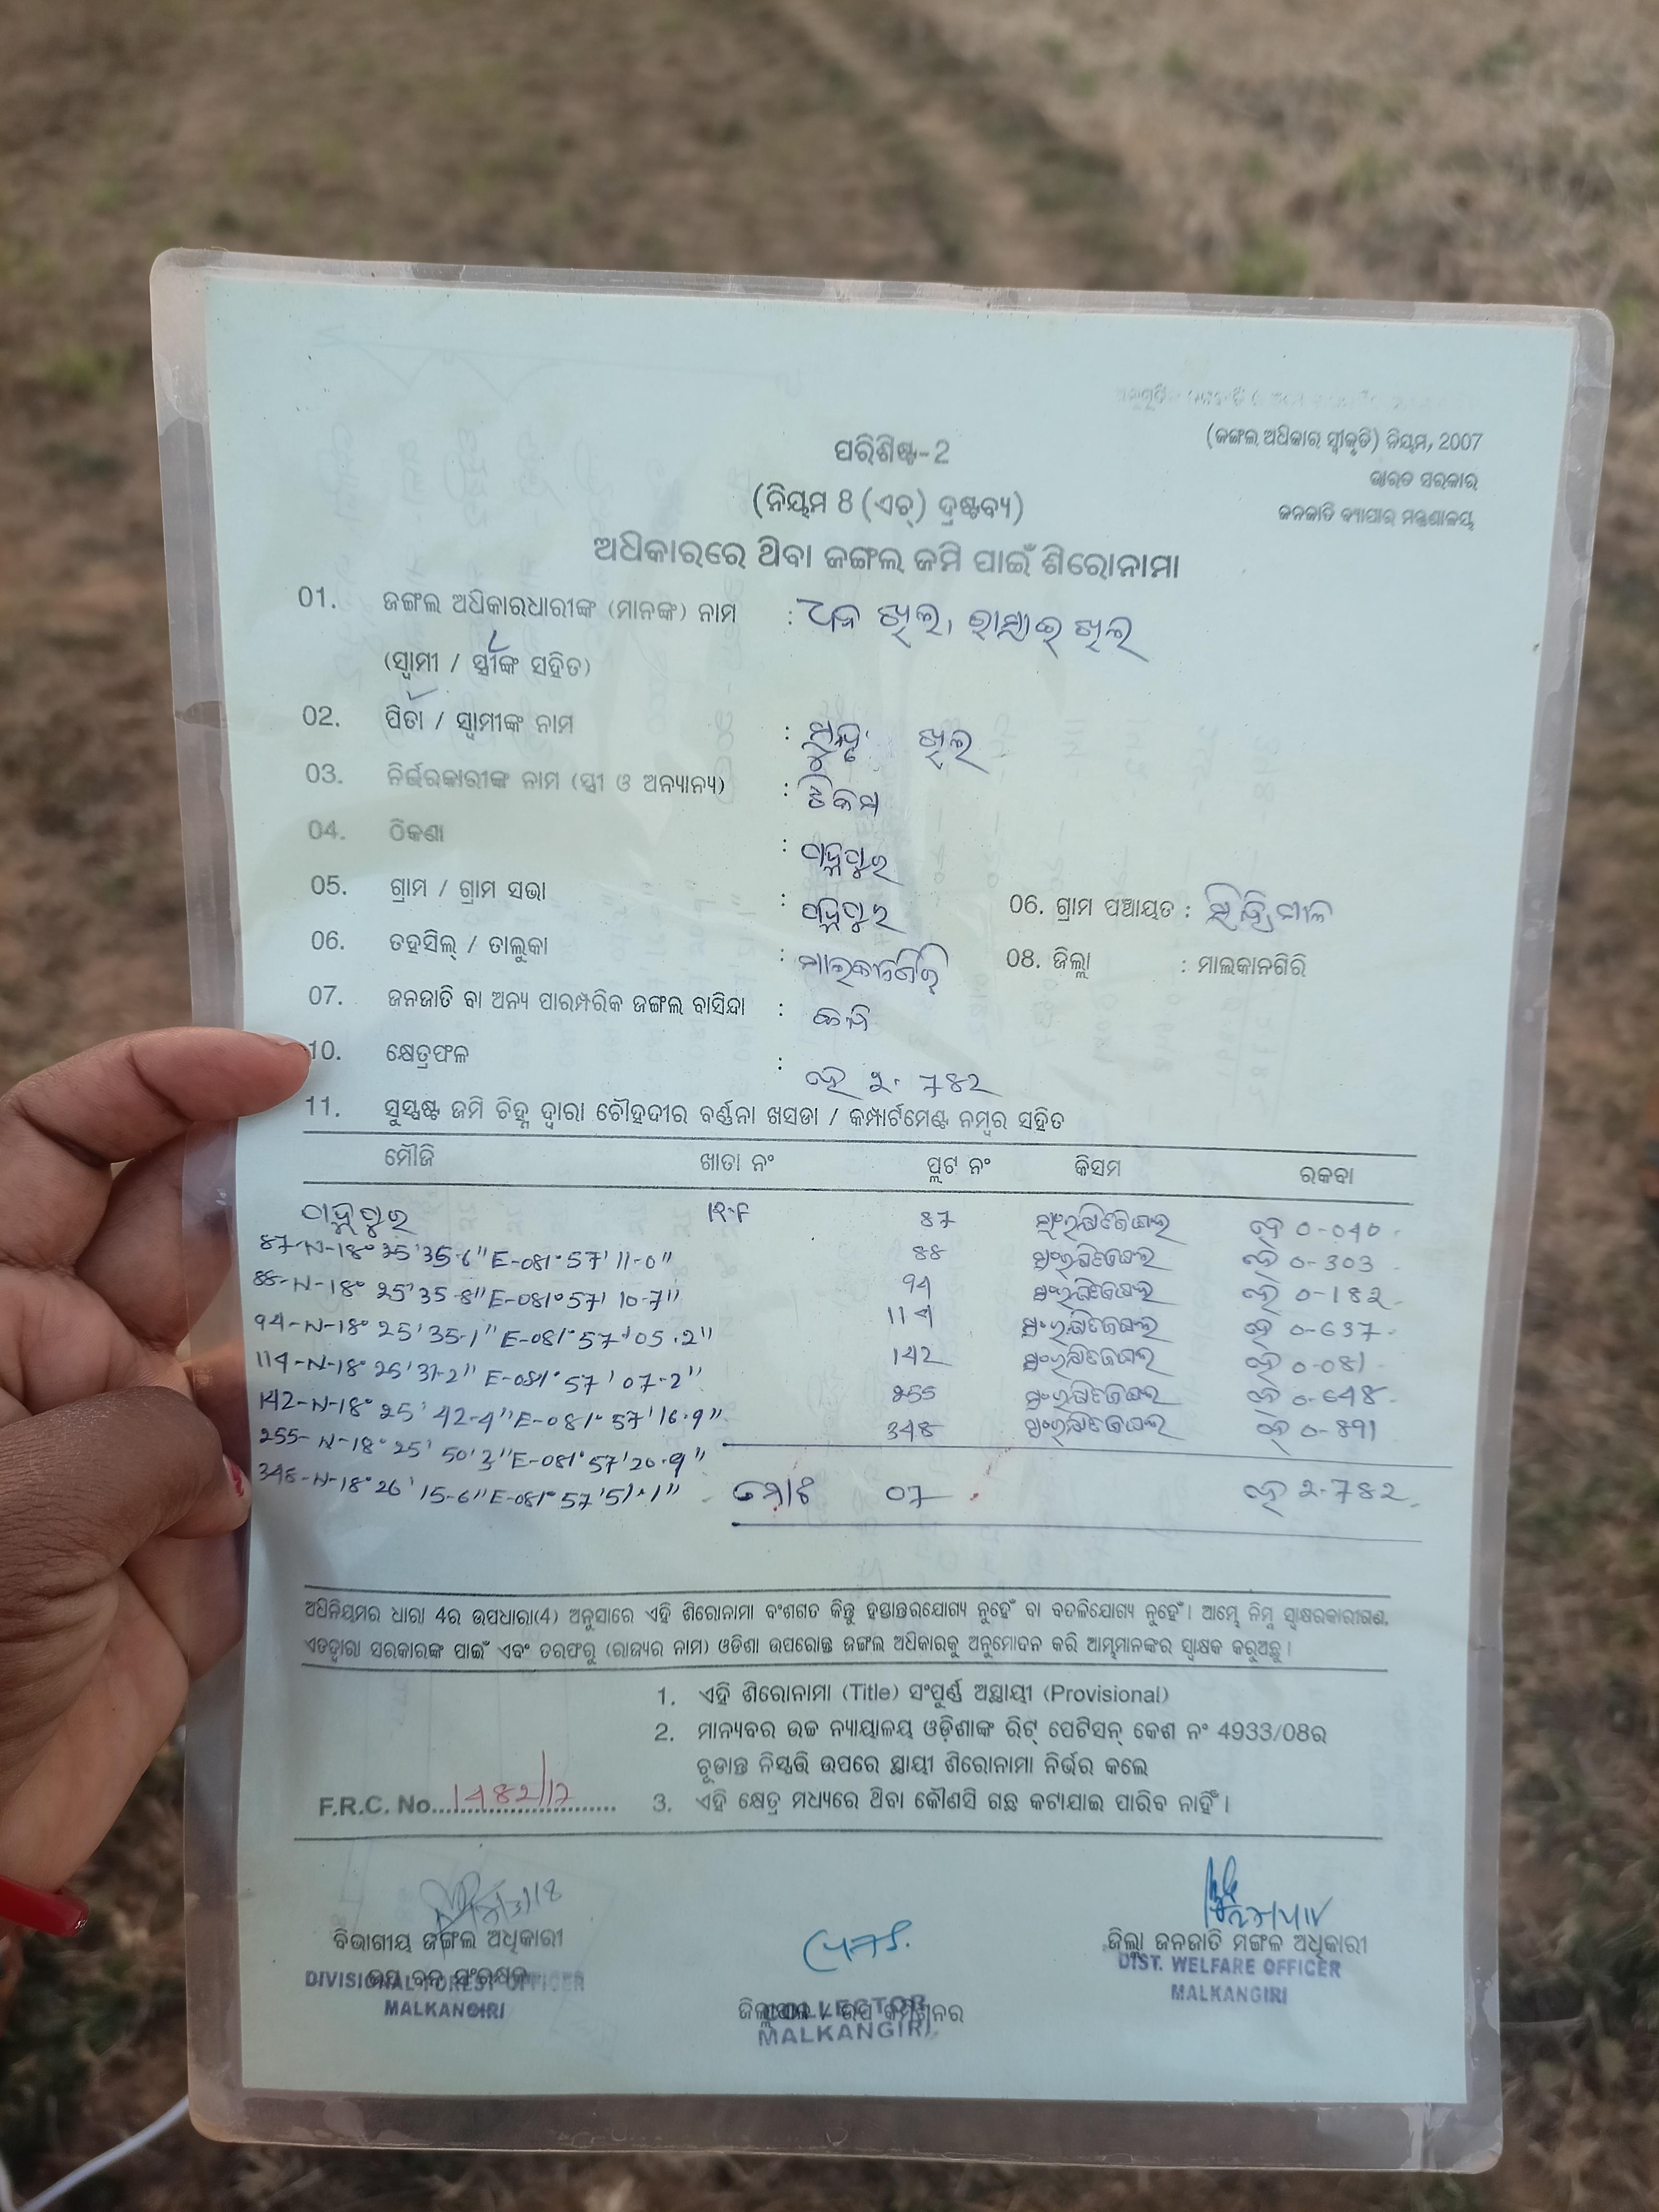 (ଜଙ୍ଗଲ ଅଧିକାର ସ୍ୱୀକୃତି) ନିୟମ, 2007
ଭାରତ ସରକାର
ଜନଜାତି ବ୍ୟାପାର ମନ୍ତ୍ରଣାଳୟ
ପରିଶିଷ୍ଟ-2
(ନିୟମ 8 (ଏଚ୍) ଦ୍ରଷ୍ଟବ୍ୟ)
ଅଧିକାରରେ ଥିବା ଜଙ୍ଗଲ ଜମି ପାଇଁ ଶିରୋନାମା
01. ଜଙ୍ଗଲ ଅଧିକାରଧାରୀଙ୍କ (ମାନଙ୍କ) ନାମ : ଖିଲ, ଖିଲ
(ସ୍ୱାମୀ / ସ୍ତ୍ରୀଙ୍କ ସହିତ)
02. ପିତା / ସ୍ୱାମୀଙ୍କ ନାମ : ଖିଲ
03. ନିର୍ଭରକାରୀଙ୍କ ନାମ (ସ୍ତ୍ରୀ ଓ ଅନ୍ୟାନ୍ୟ) :
04. ଠିକଣା :
05. ଗ୍ରାମ / ଗ୍ରାମ ସଭା : 06. ଗ୍ରାମ ପଞ୍ଚାୟତ :
06. ତହସିଲ୍ / ତାଲୁକା : ମାଲକାନଗିରି 08. ଜିଲ୍ଲା : ମାଲକାନଗିରି
07. ଜନଜାତି ବା ଅନ୍ୟ ପାରମ୍ପରିକ ଜଙ୍ଗଲ ବାସିନ୍ଦା :
10. କ୍ଷେତ୍ରଫଳ : ହେ ୨. ୭୮୨
11. ସୁସ୍ପଷ୍ଟ ଜମି ଚିହ୍ନ ଦ୍ୱାରା ଚୌହଦୀର ବର୍ଣ୍ଣନା ଖସଡା / କମ୍ପାର୍ଟମେଣ୍ଟ ନମ୍ବର ସହିତ
ମୌଜି ଖାତା ନଂ ପ୍ଲଟ ନଂ କିସମ ରକବା
R.F 87 ସଂରକ୍ଷିତଜଙ୍ଗଲ ହେ 0-040
87-N-18° 25'35-6" E-081°57' 11-0" 88 ସଂରକ୍ଷିତଜଙ୍ଗଲ ହେ 0-303
88-N-18° 25'35-8" E-081°57' 10-7" 94 ସଂରକ୍ଷିତଜଙ୍ଗଲ ହେ 0-182
94-N-18° 25'35-1" E-081°57'05.2" 114 ସଂରକ୍ଷିତଜଙ୍ଗଲ ହେ 0-637
114-N-18° 25'37-2" E-081°57'07-2" 142 ସଂରକ୍ଷିତଜଙ୍ଗଲ ହେ 0-081
142-N-18° 25' 42-4" E-081° 57'16.9" 255 ସଂରକ୍ଷିତଜଙ୍ଗଲ ହେ 0-648
255-N-18° 25' 50'3" E-081°57'20.9" 348 ସଂରକ୍ଷିତଜଙ୍ଗଲ ହେ 0-891
348-N-18° 26' 15-6" E-081° 57'51.1" ମୋଟ 07 ହେ 2.782
ଅଧିନିୟମର ଧାରା 4ର ଉପଧାରା(4) ଅନୁସାରେ ଏହି ଶିରୋନାମା ବଂଶଗତ କିନ୍ତୁ ହସ୍ତାନ୍ତରଯୋଗ୍ୟ ନୁହେଁ ବା ବଦଳିଯୋଗ୍ୟ ନୁହେଁ। ଆମ୍ଭେ ନିମ୍ନ ସ୍ୱାକ୍ଷରକାରୀଗଣ,
ଏତଦ୍ୱାରା ସରକାରଙ୍କ ପାଇଁ ଏବଂ ତରଫରୁ (ରାଜ୍ୟର ନାମ) ଓଡିଶା ଉପରୋକ୍ତ ଜଙ୍ଗଲ ଅଧିକାରକୁ ଅନୁମୋଦନ କରି ଆମ୍ଭମାନଙ୍କର ସ୍ୱାକ୍ଷକ କରୁଅଛୁ।
1. ଏହି ଶିରୋନାମା (Title) ସଂପୂର୍ଣ୍ଣ ଅସ୍ଥାୟୀ (Provisional)
2. ମାନ୍ୟବର ଉଚ୍ଚ ନ୍ୟାୟାଳୟ ଓଡ଼ିଶାଙ୍କ ରିଟ୍ ପେଟିସନ୍ କେଶ ନଂ 4933/08ର
ଚୂଡାନ୍ତ ନିସ୍ପତ୍ତି ଉପରେ ସ୍ଥାୟୀ ଶିରୋନାମା ନିର୍ଭର କଲେ
F.R.C. No. 1482/12 3. ଏହି କ୍ଷେତ୍ର ମଧ୍ୟରେ ଥିବା କୌଣସି ଗଛ କଟାଯାଇ ପାରିବ ନାହିଁ।
ବିଭାଗୀୟ ଜଙ୍ଗଲ ଅଧିକାରୀ
ଉପ ବନ ସଂରକ୍ଷକ
DIVISIONAL FOREST OFFICER
MALKANGIRI
ଜିଲ୍ଲାପାଳ / ଉପ କମିଶନର
COLLECTOR
MALKANGIRI
ଜିଲ୍ଲା ଜନଜାତି ମଙ୍ଗଳ ଅଧିକାରୀ
DIST. WELFARE OFFICER
MALKANGIRI